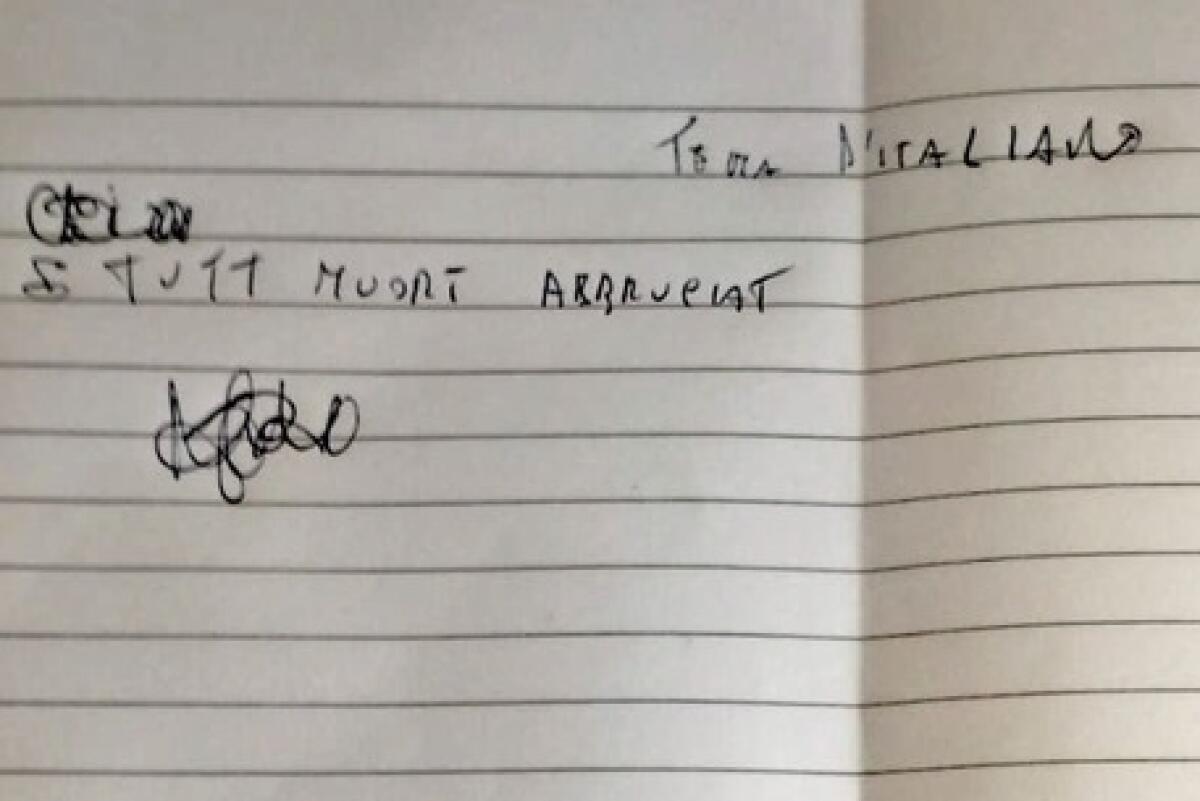 TEMA D'ITALIANO
E TUTT MUORT ABBRUCIAT